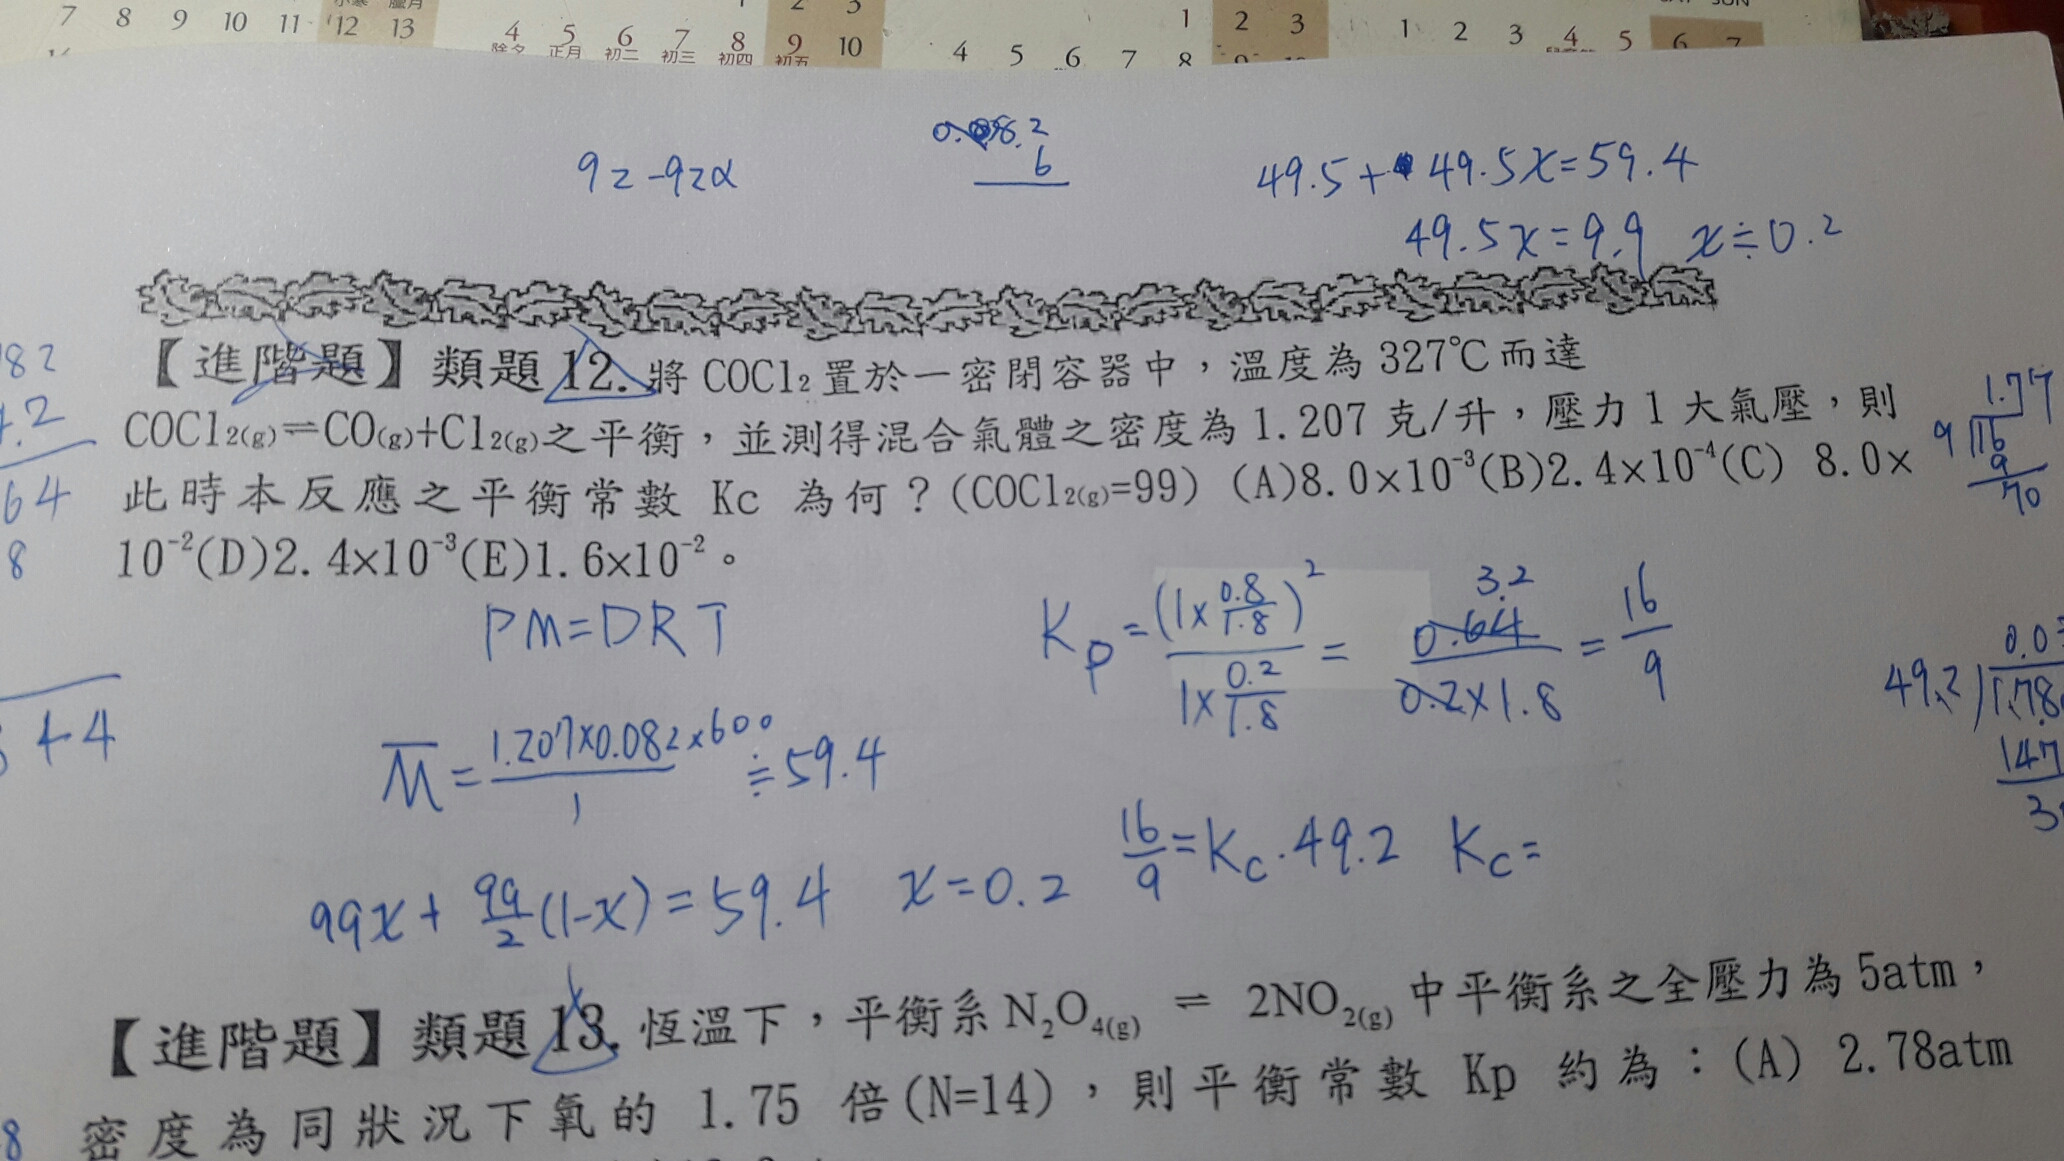 7 8 9 10 11 12 13
4 5 6 7 8 9 10
除夕 正月 初二 初三 初四 初五
1 2 3
4 5 6 7 8
1 2 3 4 5 6 7
9z-9zα
6
49.5+49.5x=59.4
49.5x=9.9 x≒0.2
【進階題】類題12.將COCl₂置於一密閉容器中，溫度為327℃而達
COCl₂(g)⇌CO(g)+Cl₂(g)之平衡，並測得混合氣體之密度為1.207克/升，壓力1大氣壓，則
此時本反應之平衡常數 Kc 為何？(COCl₂(g)=99) (A)8.0×10⁻³(B)2.4×10⁻⁴(C) 8.0×
10⁻²(D)2.4×10⁻³(E)1.6×10⁻²。
1.77
9 16
9
70
PM=DRT
Kp=(1×0.8/1.8)²/(1×0.2/1.8)=0.64/(0.2×1.8)=16/9
3.2
M̅=1.207×0.082×600/1≒59.4
16/9=Kc·49.2 Kc=
99x+99/2(1-x)=59.4 x=0.2
82
.2
64
8
44
49.2 1.78
147
3
【進階題】類題13.恆溫下，平衡系N₂O₄(g) ⇌ 2NO₂(g)中平衡系之全壓力為5atm，
密度為同狀況下氧的 1.75 倍(N=14)，則平衡常數 Kp 約為：(A) 2.78atm
8